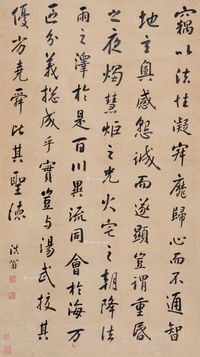 竊以法性凝寂靡歸心而不通智
地玄奧感懇誠而遂顯豈謂重昏
之夜燭慧炬之光火宅之朝降法
雨之澤於是百川異流同會於海萬
區分義總成乎實豈與湯武校其
優劣堯舜比其聖德